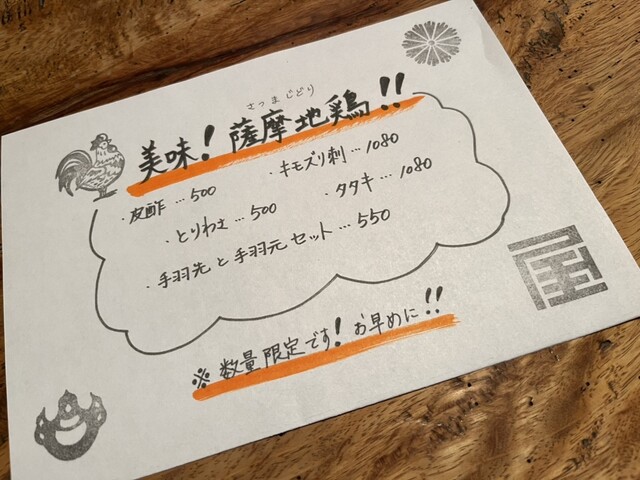 さつま じどり
美味！薩摩地鶏！！
・皮酢…500
・キモズリ刺…1080
・とりわさ…500
・タタキ…1080
・手羽先と手羽元セット…550
※数量限定です！お早めに！！
屋